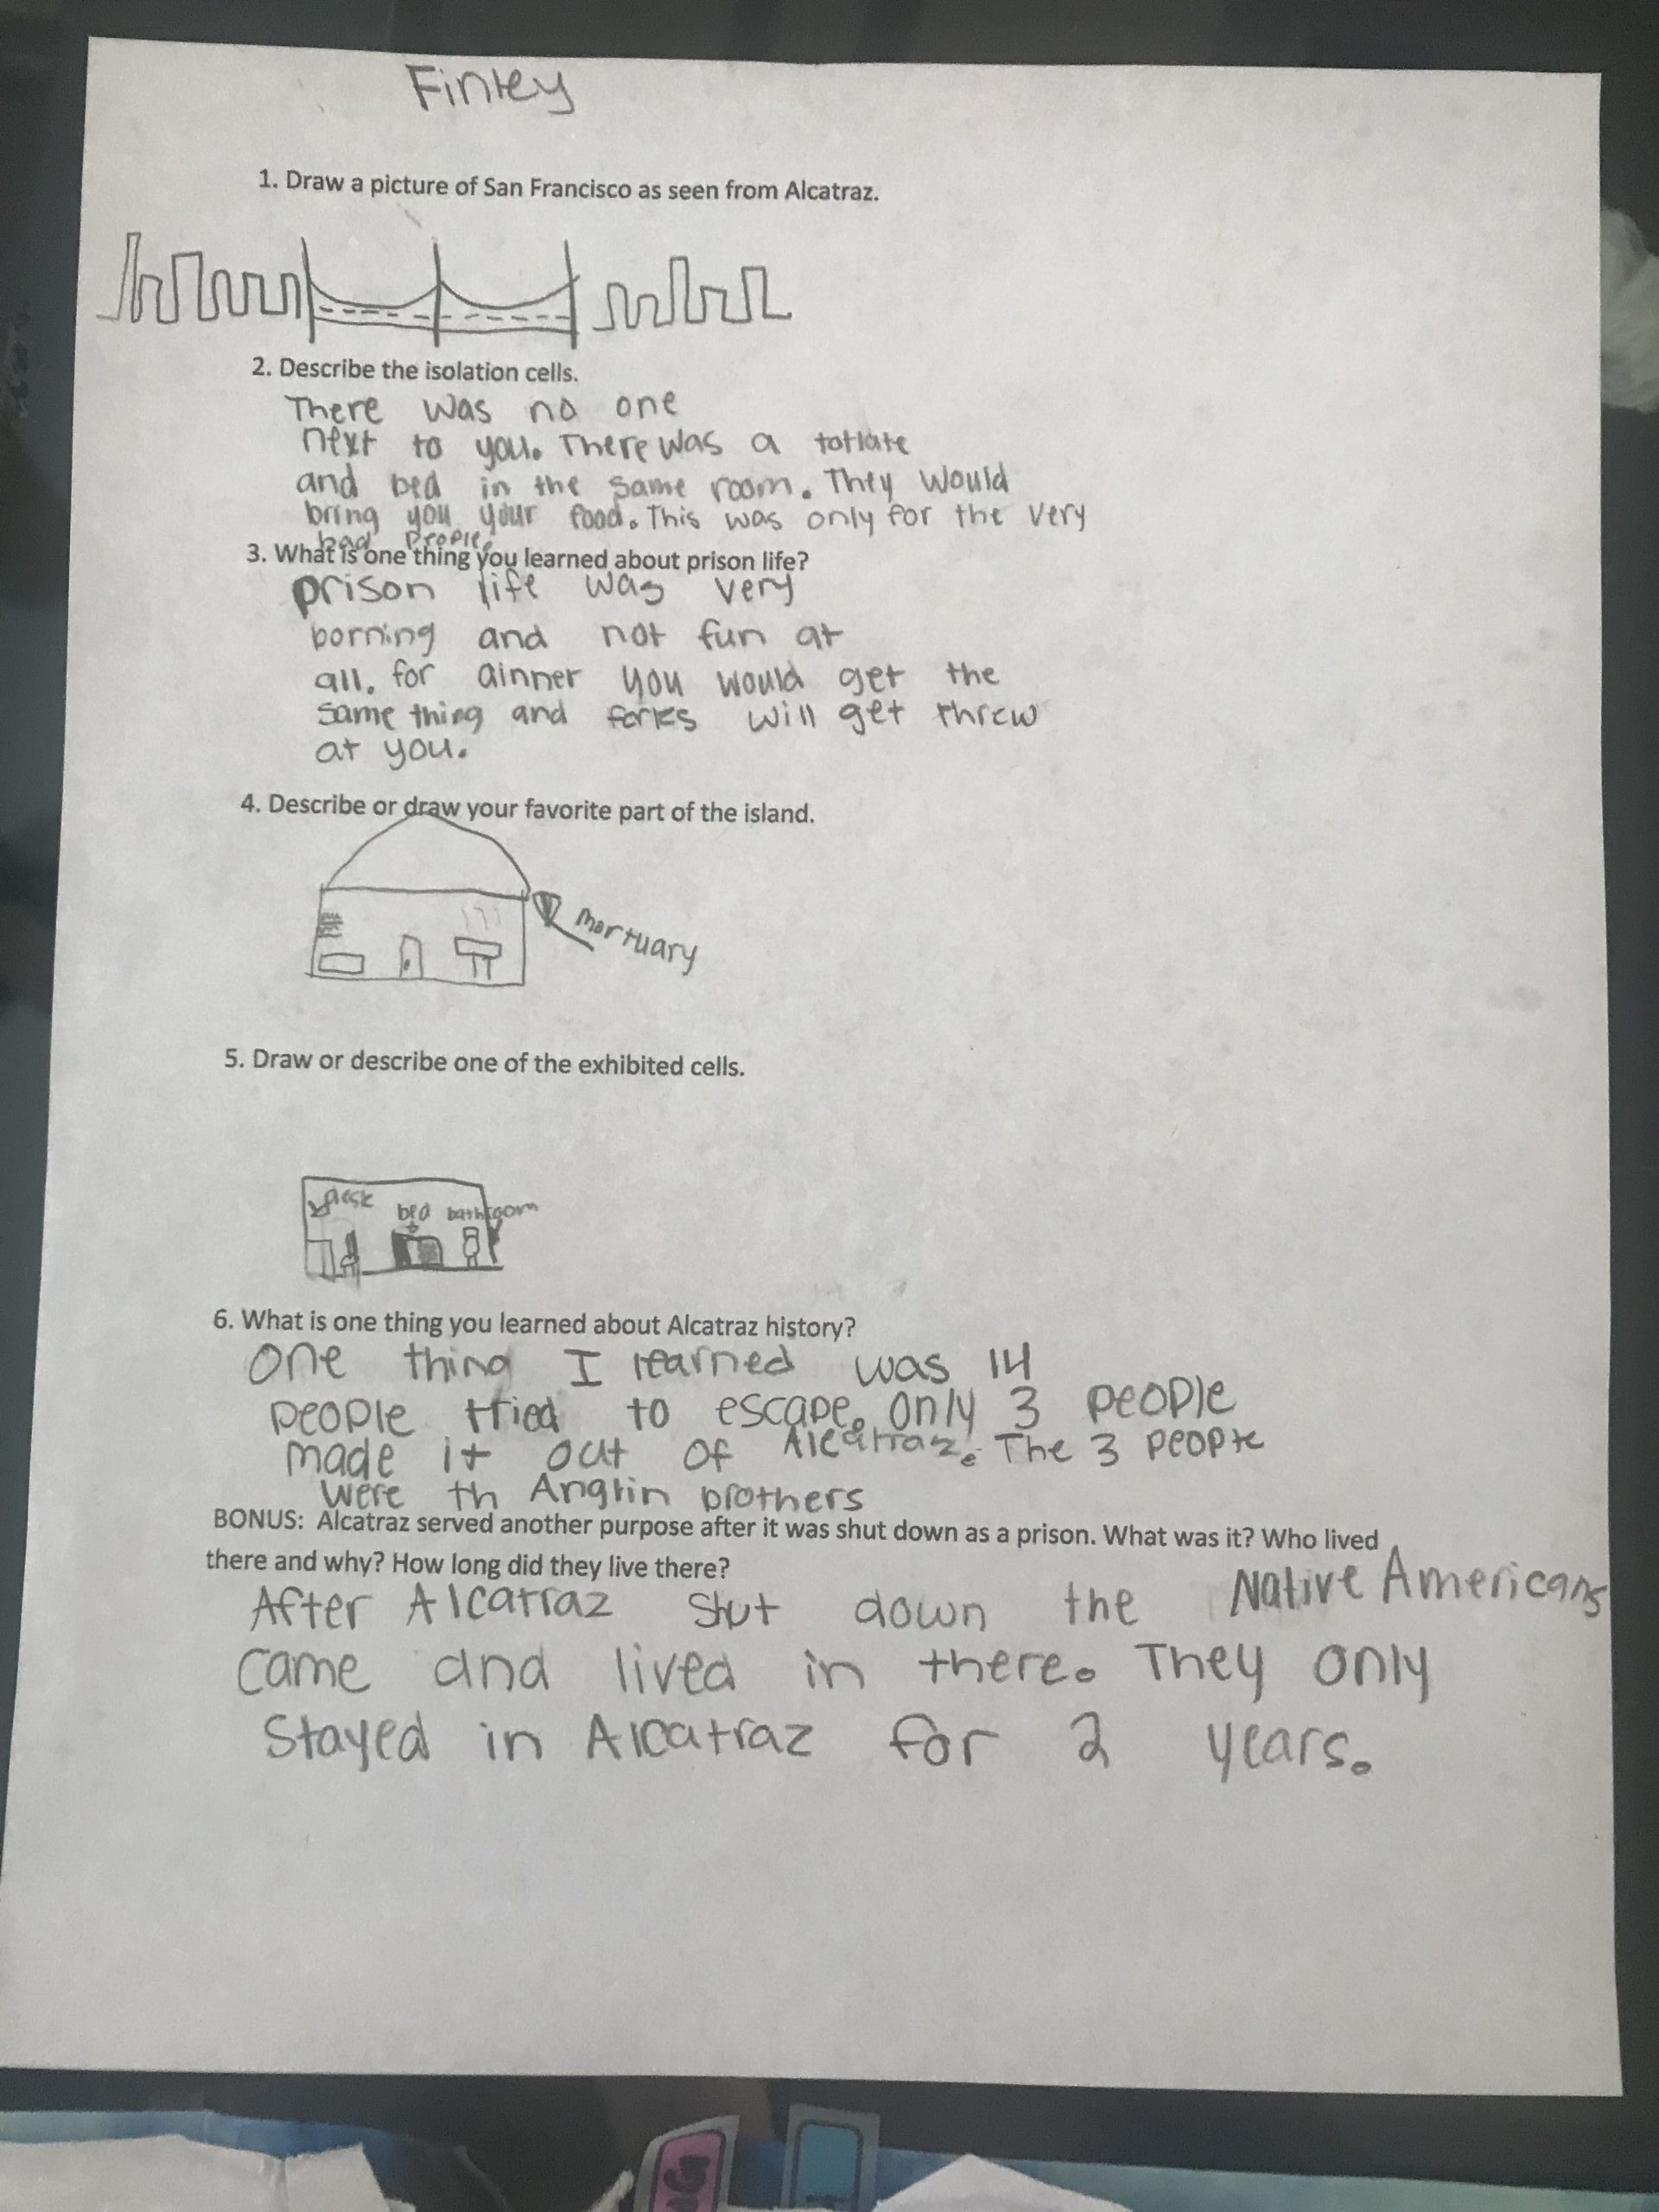 Finley
1. Draw a picture of San Francisco as seen from Alcatraz.
2. Describe the isolation cells.
There was no one
next to you. There was a totlate
and bed in the same room. They would
bring you your food. This was only for the very
bad people.
3. What is one thing you learned about prison life?
prison life was very
borning and not fun at
all. for dinner you would get the
same thing and forks will get threw
at you.
4. Describe or draw your favorite part of the island.
mortuary
5. Draw or describe one of the exhibited cells.
desk
bed bathroom
6. What is one thing you learned about Alcatraz history?
One thing I learned was 14
people tried to escape. only 3 people
made it out of Alcatraz. The 3 people
were th Anglin brothers
BONUS: Alcatraz served another purpose after it was shut down as a prison. What was it? Who lived
there and why? How long did they live there?
After Alcatraz shut down the Native Americans
came and lived in there. They only
Stayed in Alcatraz for 2 years.